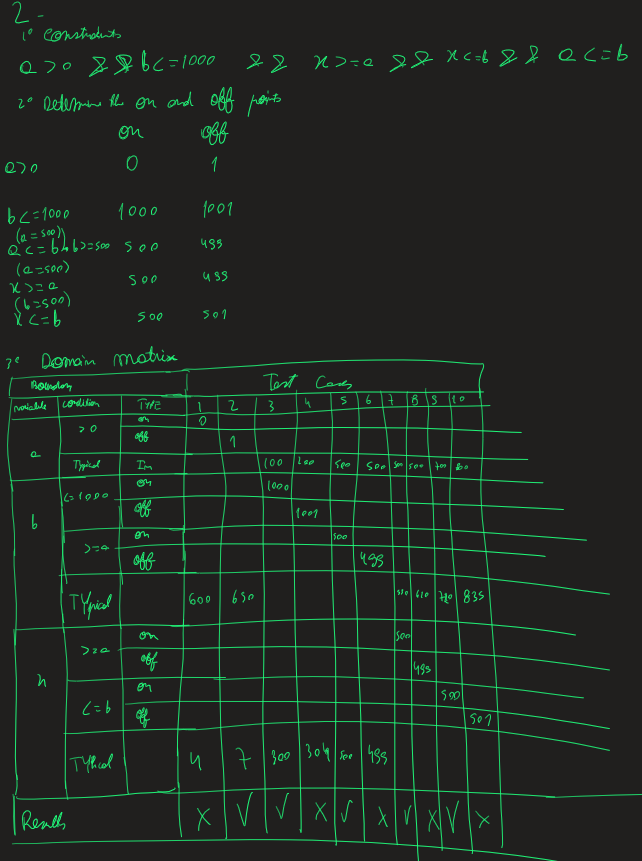 2 -
1º constraints
a > 0 && b <= 1000 && x >= a && x <= b && a <= b
2º Determine the on and off points
on off
a > 0 0 1
b <= 1000 1000 1001
(a = 500)
a <= b b >= 500 500 499
(a = 500)
x >= a 500 499
(b = 500)
x <= b 500 501
3º Domain matrix
Boundary Test Cases
variable condition TYPE 1 2 3 4 5 6 7 8 9 10
a > 0 on 0
off 1
Typical In 100 200 500 500 500 500 700 800
b <= 1000 on 1000
off 1001
>= a on 500
off 499
TYpical 600 650 835
x >= a on 500
off 499
<= b on 500
off 501
TYpical 4 7 300 304 500 499
Results X √ √ X √ X √ X √ X